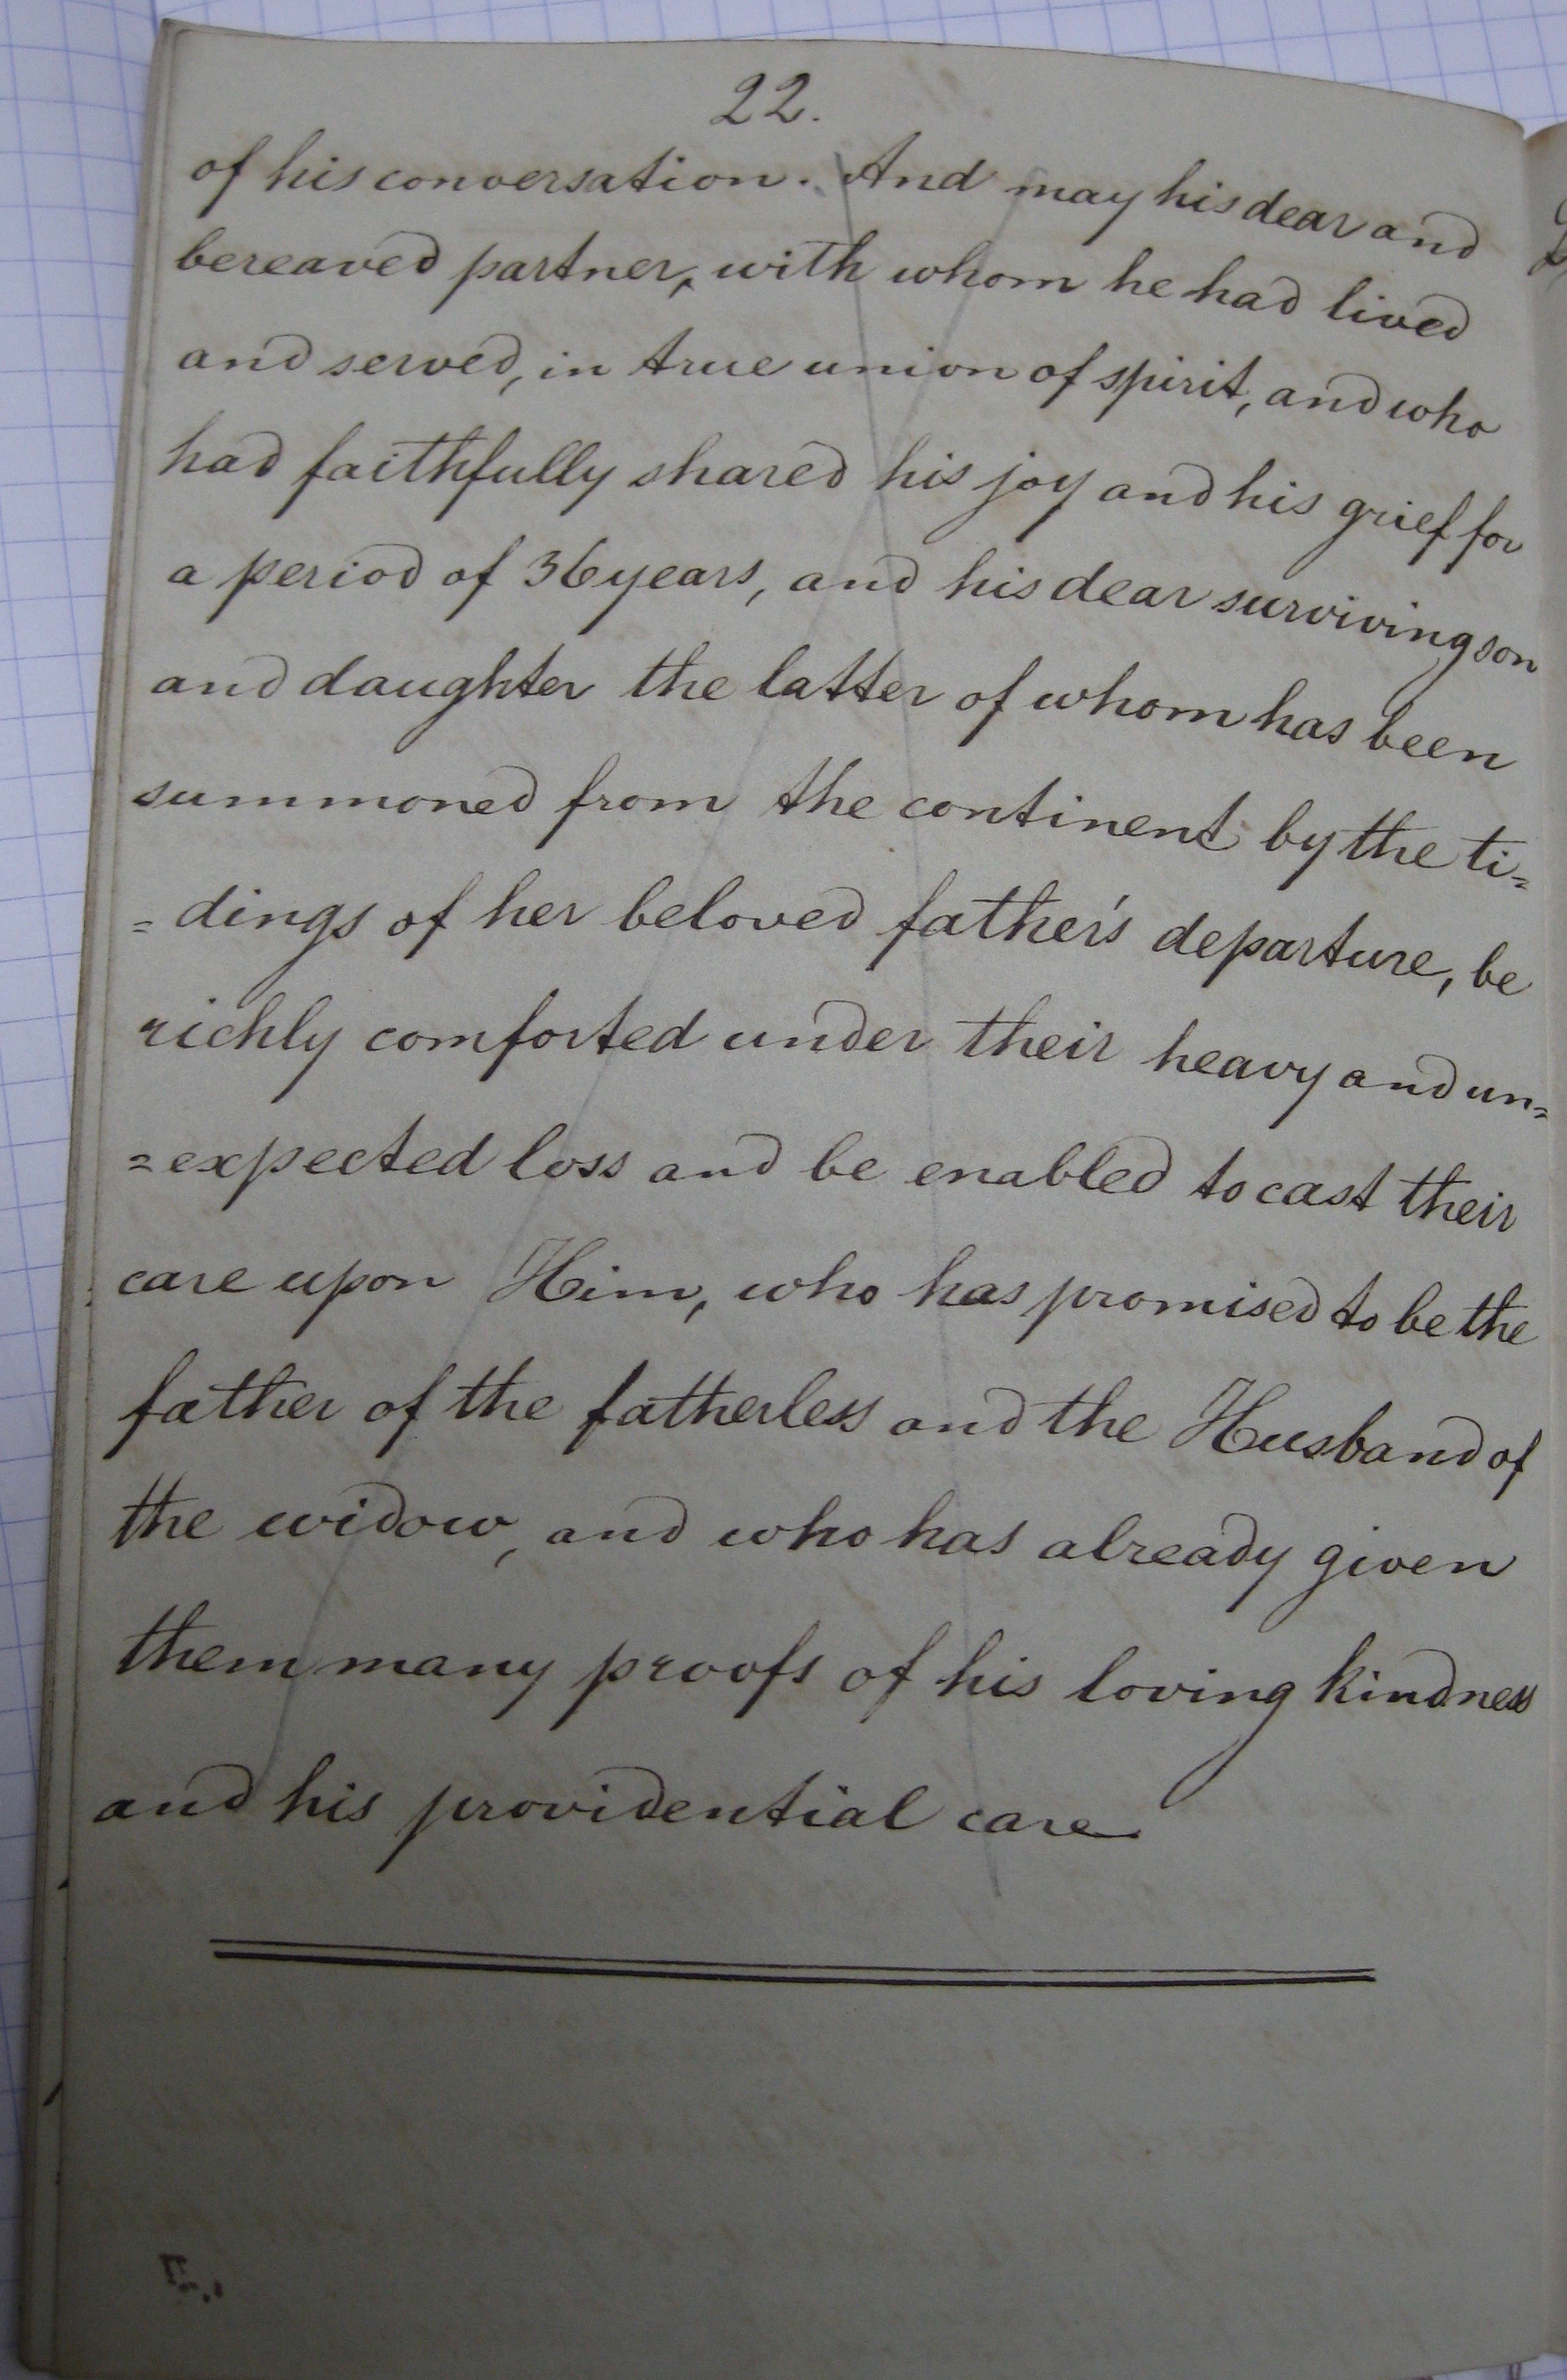 22.
of his conversation. And may his dear and
bereaved partner, with whom he had lived
and served, in true union of spirit, and who
had faithfully shared his joy and his grief for
a period of 36 years, and his dear surviving son
and daughter the latter of whom has been
summoned from the continent by the ti=
=dings of her beloved father's departure, be
richly comforted under their heavy and un=
=expected loss and be enabled to cast their
care upon Him, who has promised to be the
father of the fatherless and the Husband of
the widow, and who has already given
them many proofs of his loving kindness
and his providential care.